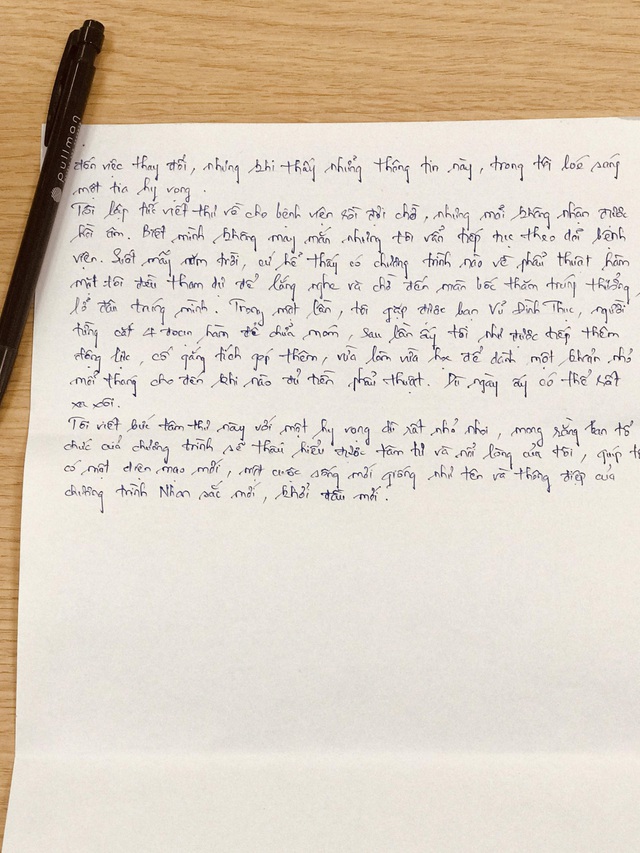 pullman
đến việc thay đổi, nhưng khi thấy những thông tin này, trong tôi loé sáng
một tia hy vọng.
Tôi lập tức viết thư về cho bệnh viện rồi đợi chờ, nhưng mãi không nhận được
hồi âm. Biết mình không may mắn nhưng tôi vẫn tiếp tục theo dõi bệnh
viện. Suốt mấy năm trời, cứ hể thấy có chương trình nào về phẩu thuật hàm
mặt tôi đều tham dự để lắng nghe và chờ đến màn bốc thăm trúng thưởng,
lở đâu trúng mình. Trong một lần, tôi gặp được bạn Vũ Đình Thục, người
từng cắt 4 đoạn hàm để chữa móm, sau lần ấy tôi như được tiếp thêm
động lực, cố gắng tích góp thêm, vừa làm vừa học để dành một khoản nhỏ
mỗi tháng cho đến khi nào đủ tiền phẩu thuật. Dù ngày ấy có thể rất
xa xôi.
Tôi viết bức tâm thư này với một hy vọng dù rất nhỏ nhoi, mong rằng ban tổ
chức của chương trình sẽ thấu hiểu được tâm tư và nổi lòng của tôi, giúp tôi
có một diện mạo mới, một cuộc sống mới giống như tên và thông điệp của
chương trình Nhan sắc mới, khởi đầu mới.